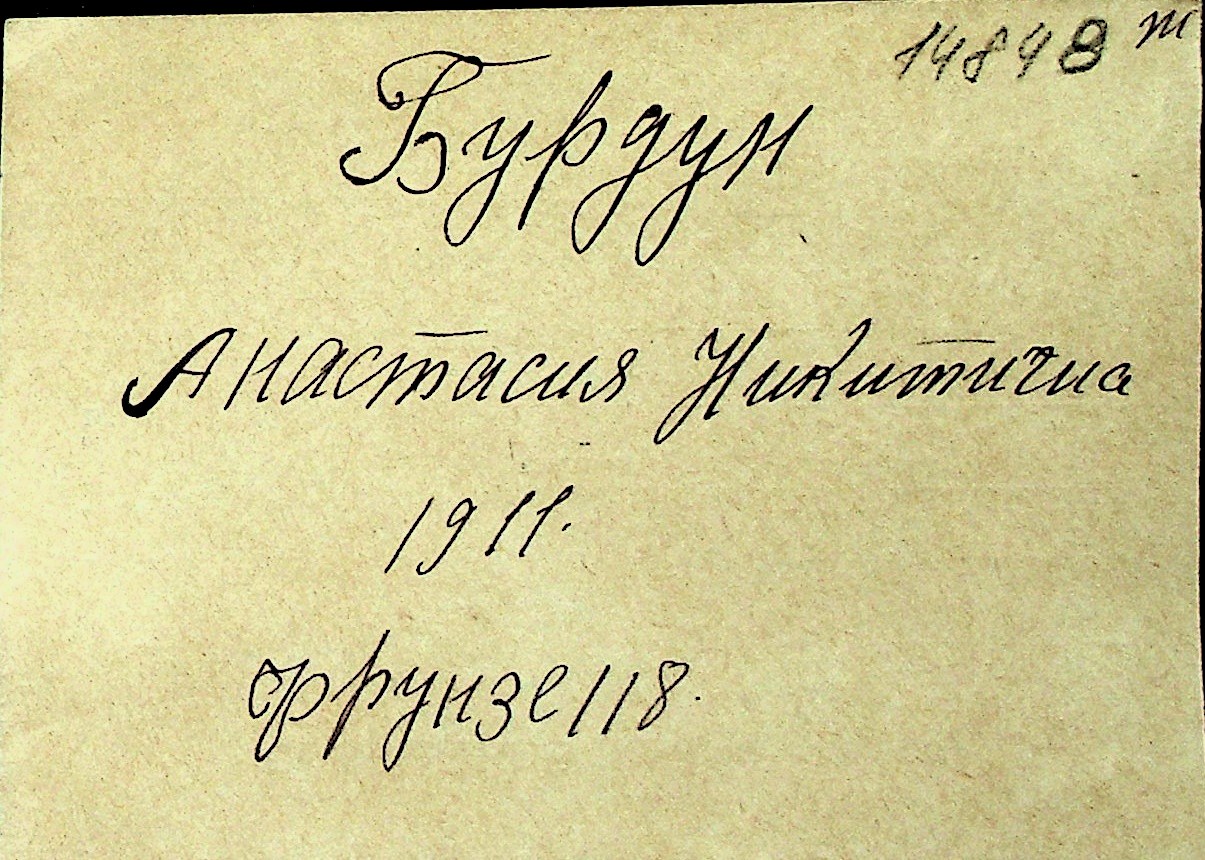 14848 т
Бурдун
Анастасия Никитична
1911.
Фрунзе 118.